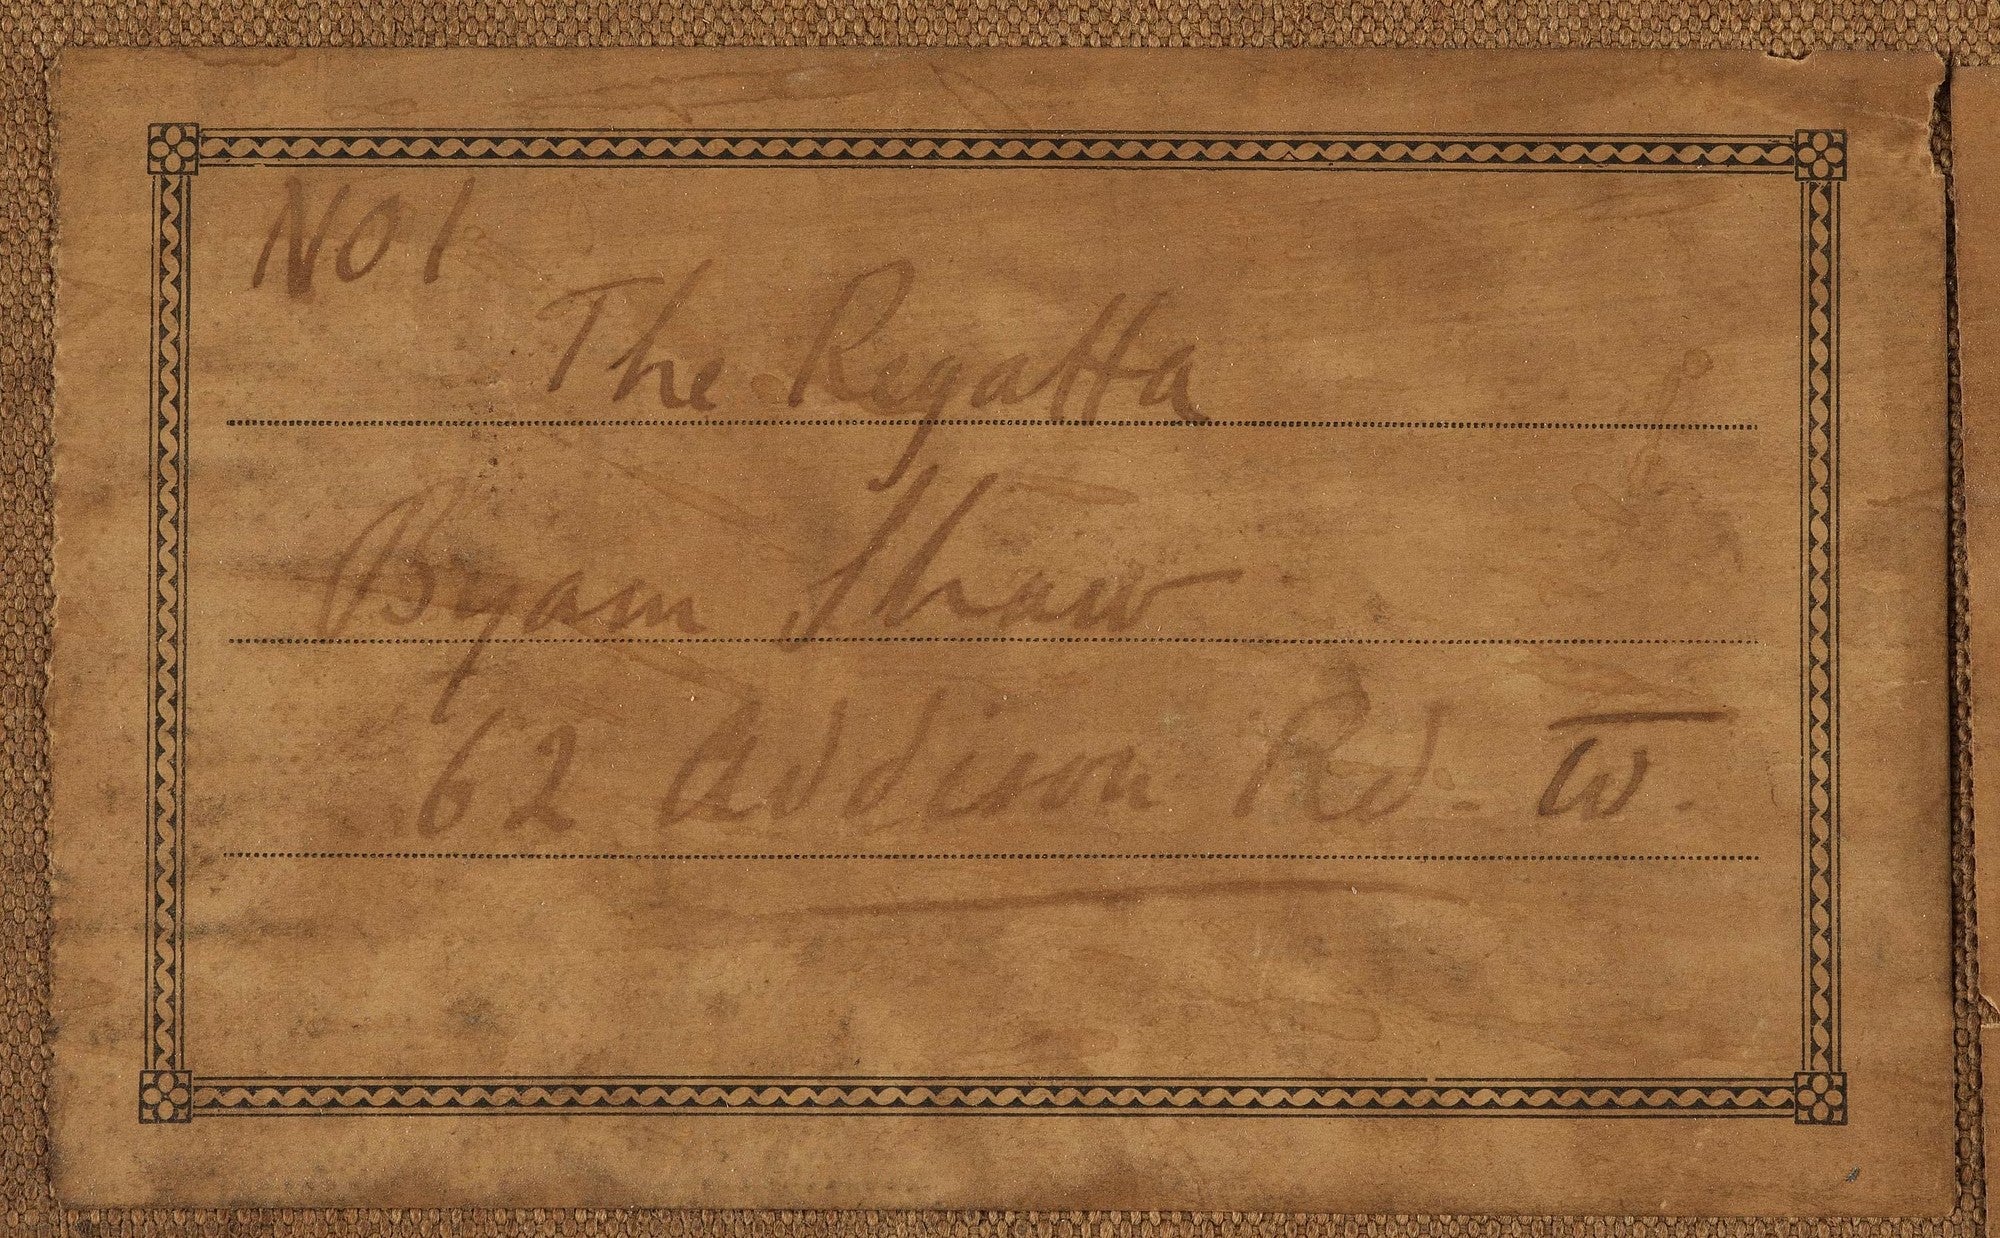 No 1
The Regatta
Byam Shaw
62 Addison Rd. W.